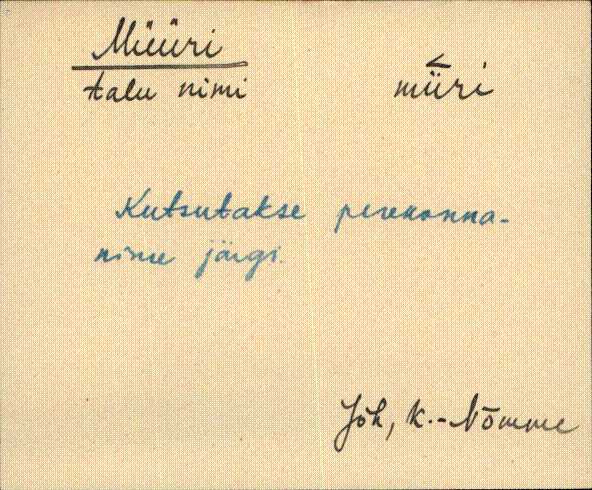 Müüri
talu nimi
müri
Kutsutakse perekonna-
nime järgi.
Jõh, K.-Nõmme